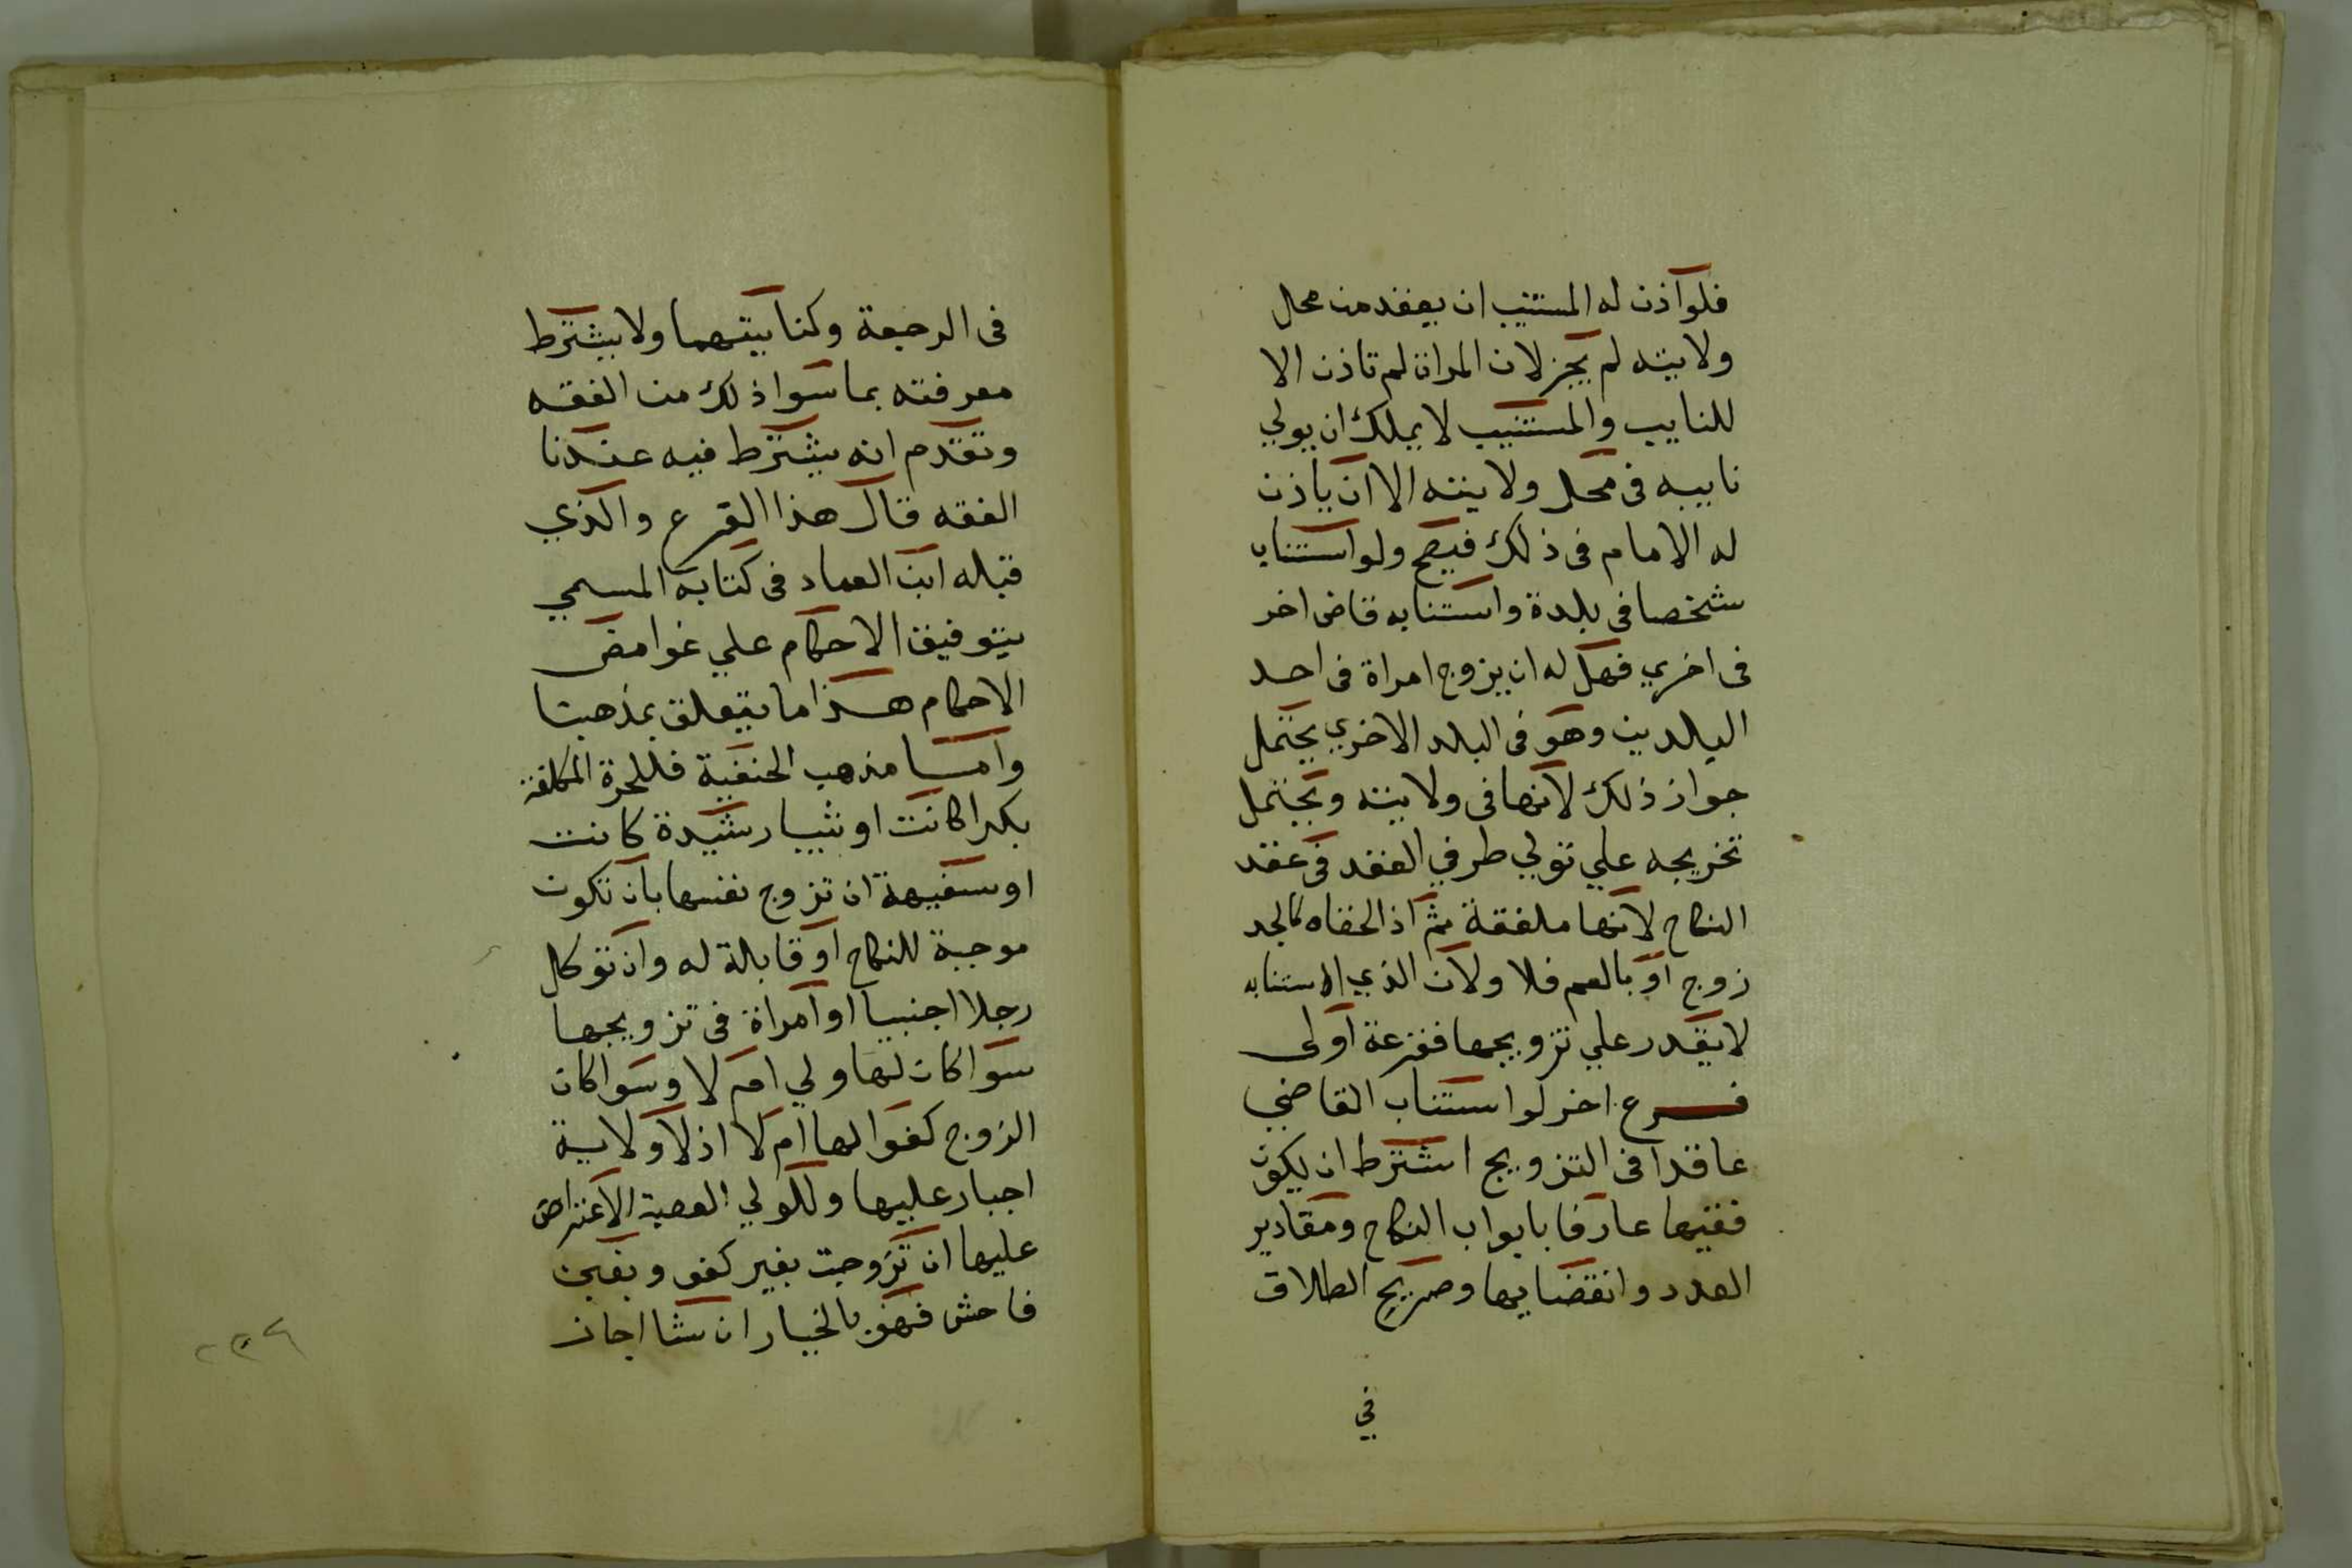 فلو اذن له المستنيب ان يعقد من محل
ولايته لم يجز لان المراة لم تاذن الا
للنايب والمستنيب لا يملك ان يولي
نايبه في محل ولايته الا ان ياذن
له الامام في ذلك فيصح ولو استناب
شخصا في بلدة واستنابه قاض اخر
في اخري فهل له ان يزوج امراة في احد
البلدين وهو في البلد الاخري يحتمل
جواز ذلك لانها في ولايته ويحتمل
تخريجه علي تولي طرفي العقد في عقد
النكاح لانها ملفقة ثم اذ الحقناه كالجد
زوج او بالعم فلا ولان الذي استنابه
لا يقدر علي تزويجها ففرعه اولى
فرع اخر لو استناب القاضي
عاقدا في التزويج اشترط ان يكون
فقيها عارفا بابواب النكاح ومقادير
العدد وانقضايها وصريح الطلاق
في
في الرجعة وكنايتهما ولا يشترط
معرفته بما سوا ذلك من الفقه
وتقدم انه يشترط فيه عندنا
الفقه قال هذا الفرع والذي
قبله ابن العماد في كتابه المسمي
بتوفيق الاحكام علي غوامض
الاحكام هذا ما يتعلق بمذهبنا
واما مذهب الحنفية فللحرة المكلفة
بكرا كانت او ثيبا رشيدة كانت
او سفيهة ان تزوج نفسها بان تكون
موجبة للنكاح او قابلة له وان توكل
رجلا اجنبيا او امراة في تزويجها
سوا كان لها ولي ام لا وسوا كان
الزوج كفوا لها ام لا اذ لا ولاية
اجبار عليها وللولي العصبة الاعتراض
عليها ان تزوجت بغير كفو وبغبن
فاحش فهو بالخيار ان شا اجاز